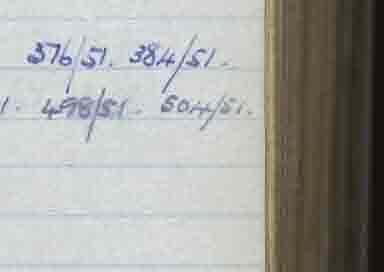 376/51. 384/51.
1. 498/51. 504/51.